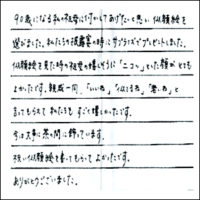 90歳になる私の祖父に何かしてあげたいと思い、似顔絵を
選びました。私たちの披露宴の時にサプライズでプレゼントしました。
似顔絵を見た時の祖父の嬉しそうに「ニコッ」といた顔が とても
よかったです。親戚一同、「いいね」「似てるね」「若いね」と
言ってもらえて 私たちも すごく嬉しかったです。
今は大事に茶の間に飾っています。
快い似顔絵を書いてもらって よかったです。
ありがとうございました。